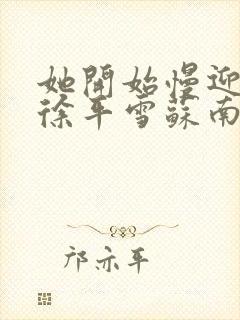 她開始慢迎
徐平雪蘇南
邝亦平